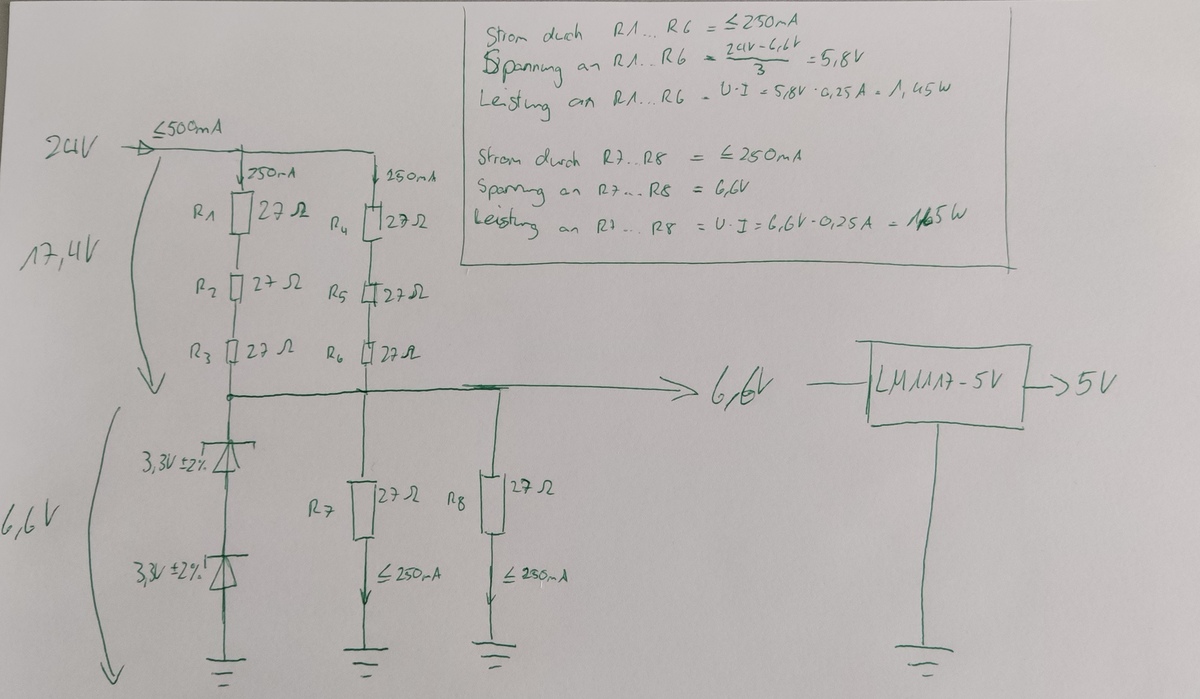 Strom durch R1...R6 = ≤250mA
Spannung an R1...R6 = (24V-6,6V)/3 = 5,8V
Leistung an R1...R6 = U·I = 5,8V·0,25A = 1,45W
Strom durch R7..R8 = ≤250mA
Spannung an R7...R8 = 6,6V
Leistung an R7...R8 = U·I = 6,6V·0,25A = 1,65W
24V
≤500mA
250mA
250mA
R1 27Ω
R4 27Ω
17,4V
R2 27Ω
R5 27Ω
R3 27Ω
R6 27Ω
6,6V
LM1117-5V
5V
3,3V ±2%
R7 27Ω
R8 27Ω
6,6V
3,3V ±2%
≤250mA
≤250mA